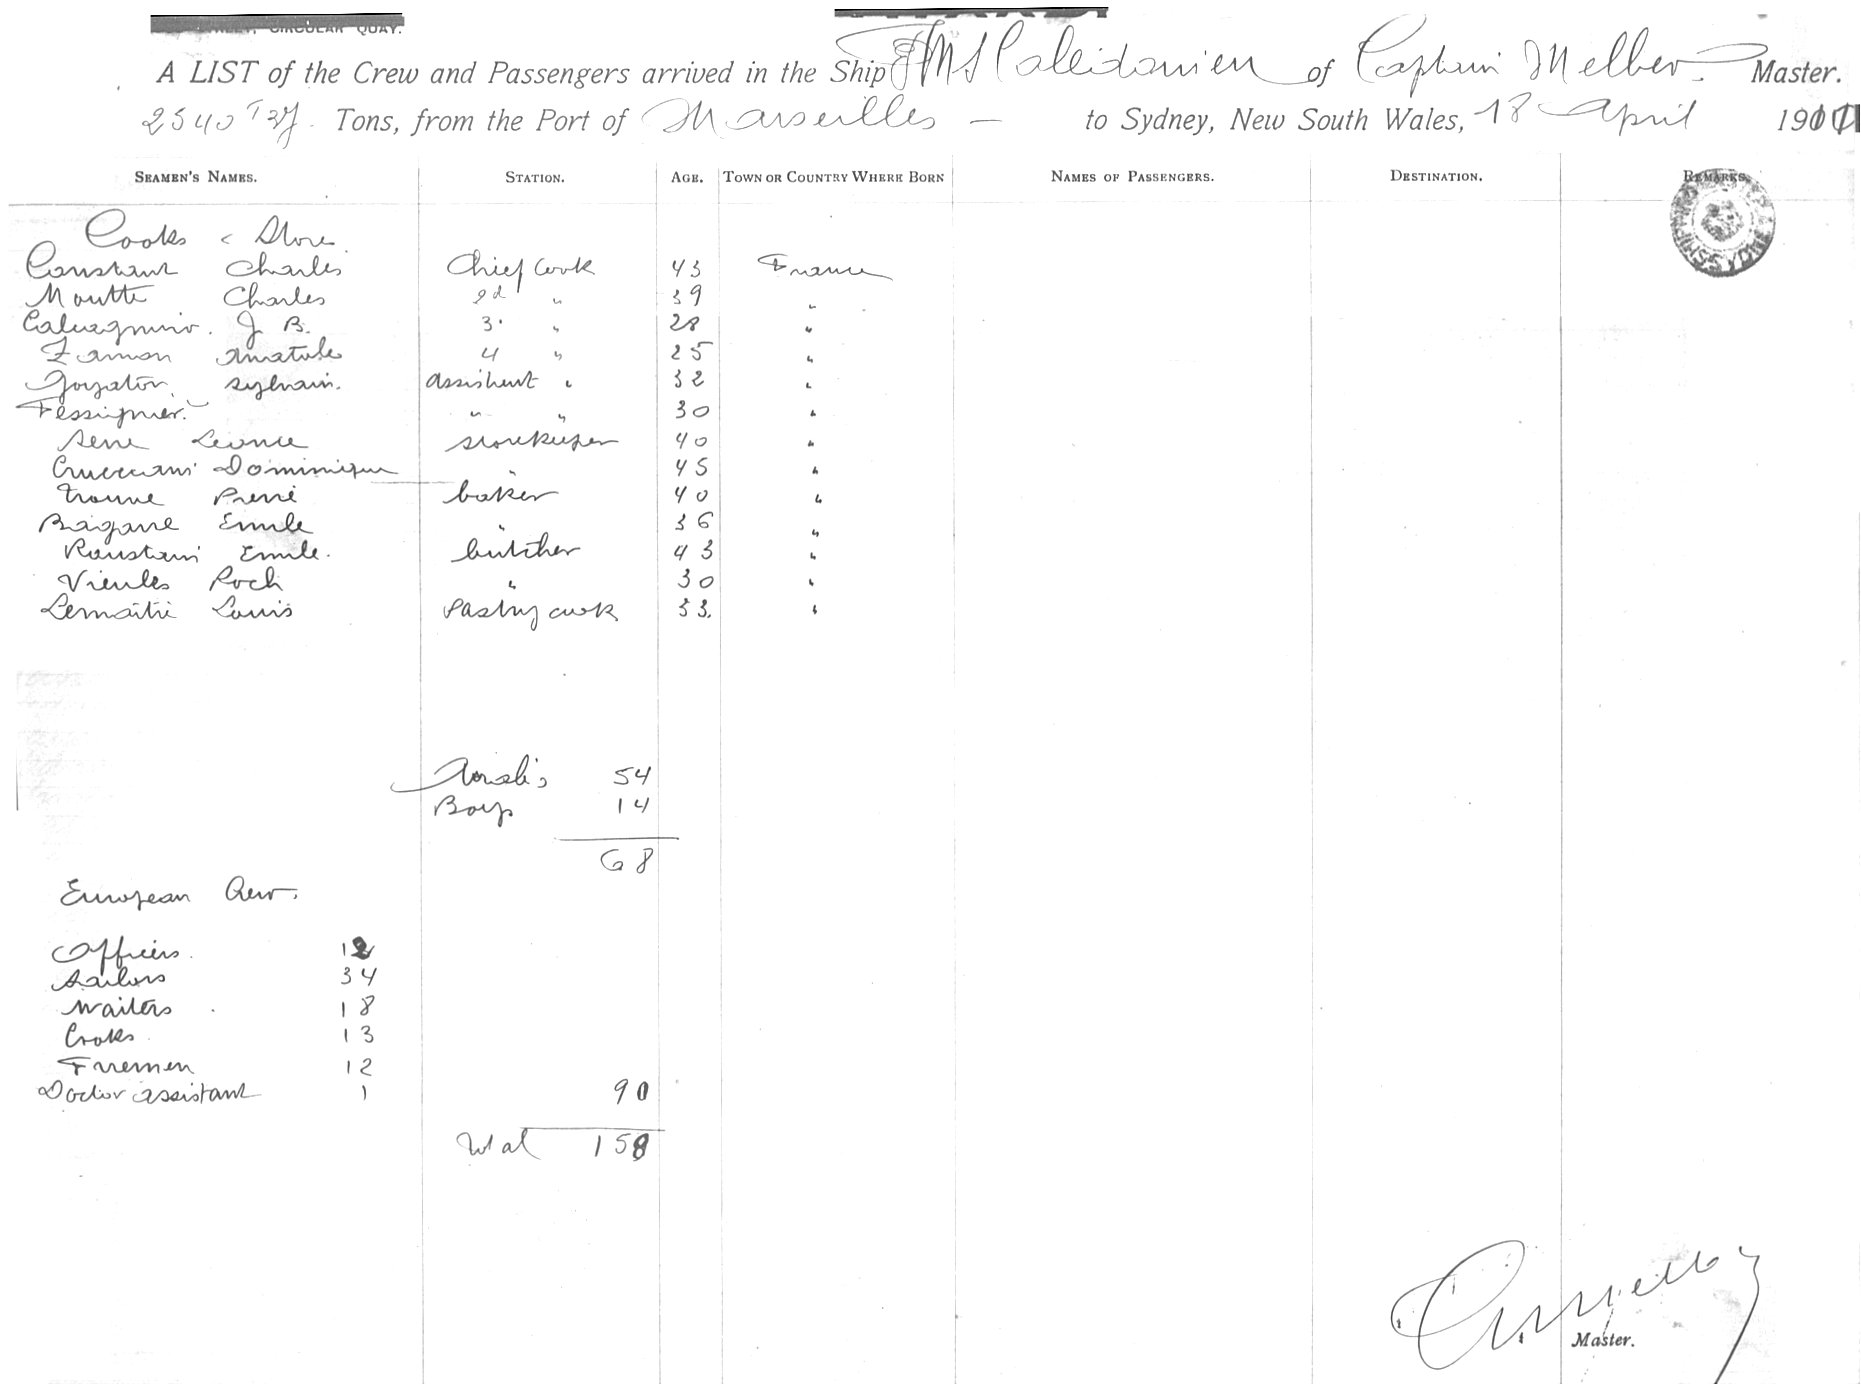 CIRCULAR QUAY.
A LIST of the Crew and Passengers arrived in the Ship FMS Caledonien of Captain Melber Master.
2540 Tons, from the Port of Marseilles - to Sydney, New South Wales, 18 April 191
SEAMEN'S NAMES. STATION. AGE. TOWN OR COUNTRY WHERE BORN NAMES OF PASSENGERS. DESTINATION. REMARKS.
Cooks & Store
Constant Charles Chief Cook 43 France
Moutte Charles 2d " 39 "
J B. 3. " 28 "
Zamon Anatole 4 " 25 "
Goyaton Sylvain. assistent " 32 "
Fessignier. " " 30 "
Sene Leonce storekeeper 40 "
Cruccani Dominique " 45 "
Tronne Pierre baker 40 "
Bagarre Emile " 36 "
Roustani Emile. butcher 43 "
Vieules Roch " 30 "
Lemaitre Louis Pastry cook 33. "
54
Boys 14
68
European Crew.
Officers. 12
Sailors 34
Waiters 18
Cooks 13
Firemen 12
Doctor assistant 1 90
Total 158
Master.